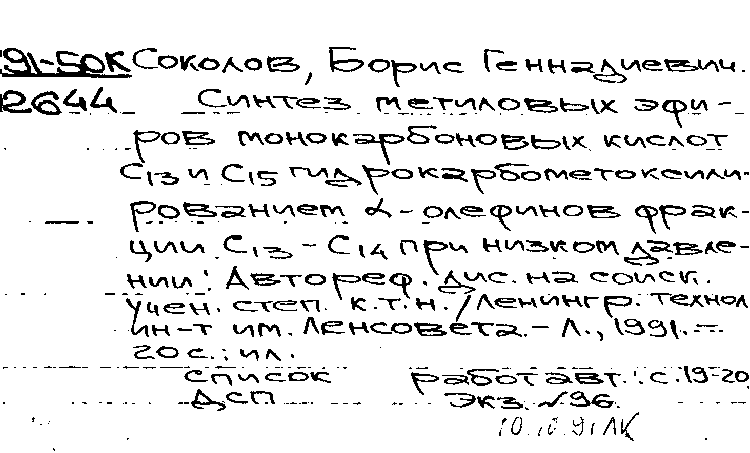 91-50К Соколов, Борис Геннадиевич.
2644 Синтез метиловых эфи-
ров монокарбоновых кислот
C13 и C15 гидрокарбометоксили-
рованием α-олефинов фрак-
ции C13-C14 при низком давле-
нии: Автореф. дис. на соиск.
учен. степ. к.т.н. / Ленингр. технол.
ин-т им. Ленсовета. - Л., 1991. -
20 с.: ил.
Список работ авт.: с. 19-20
ДСП Экз. №96.
10.10.91 ЛК